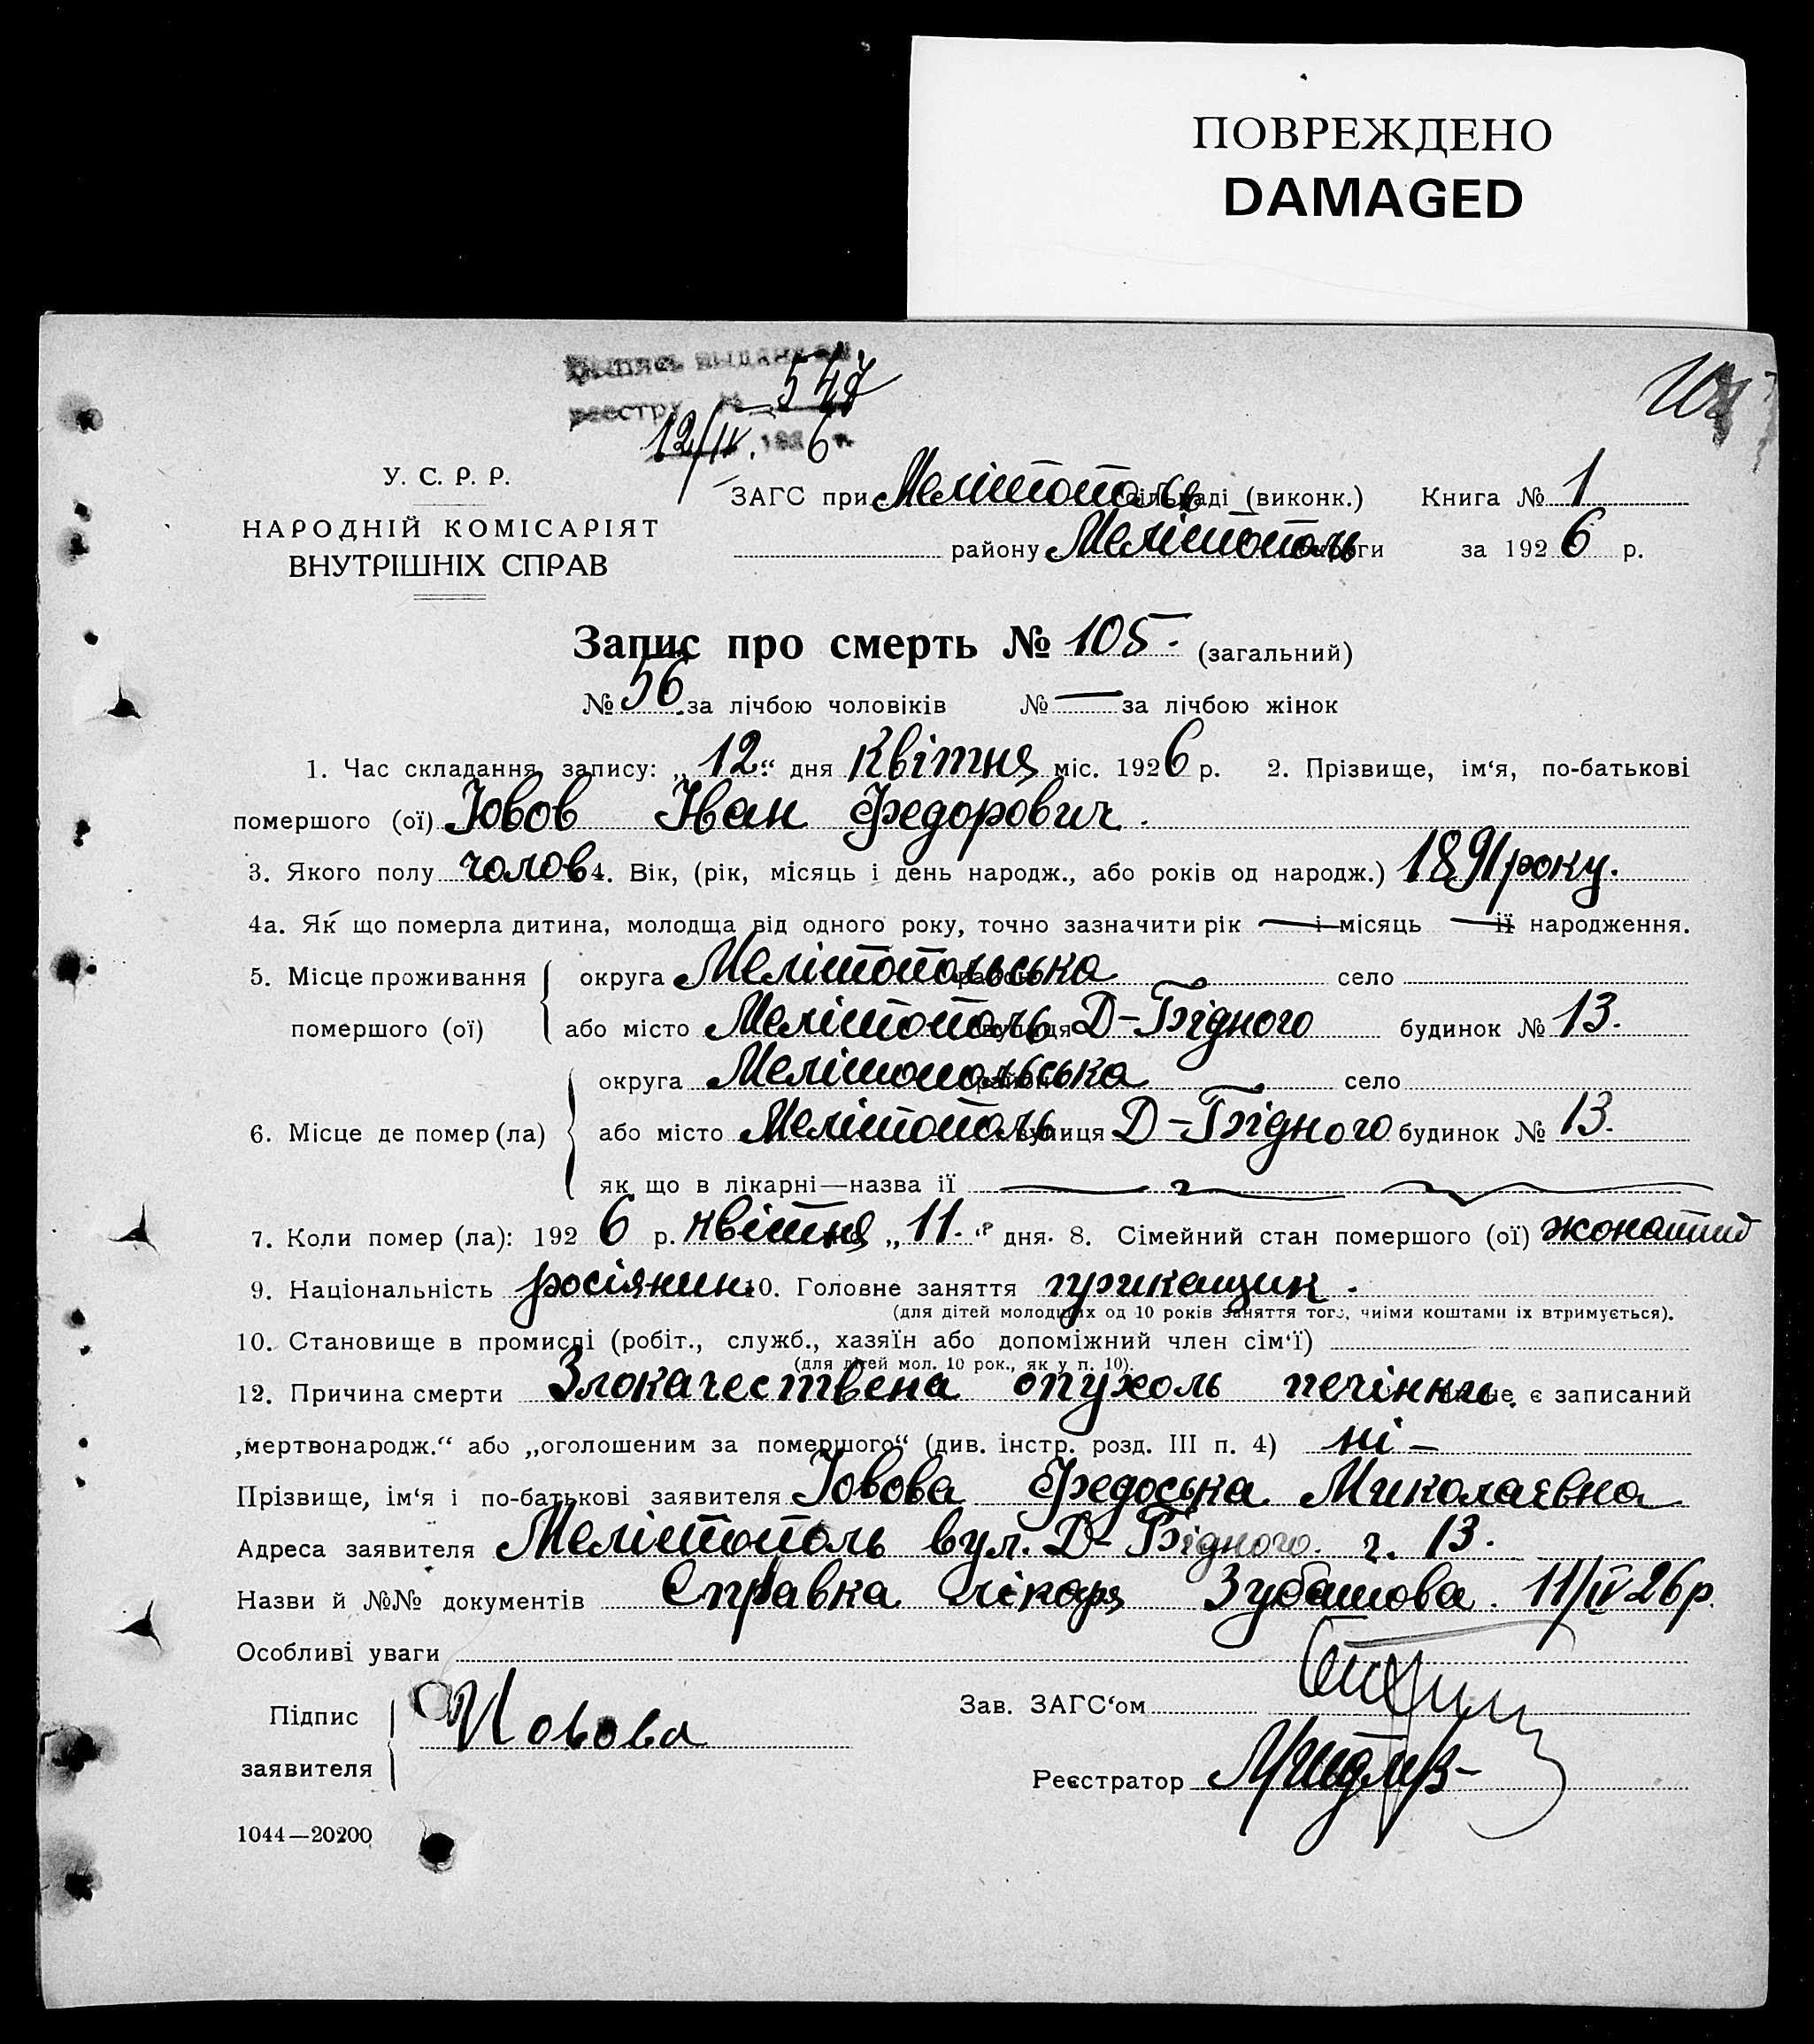 ПОВРЕЖДЕНО
DAMAGED
реестру № 547
12/IV. 1926 г.
У. С. Р. Р.
НАРОДНІЙ КОМІСАРІЯТ
ВНУТРІШНІХ СПРАВ
ЗАГС при Мелітополь сільраді (виконк.) Книга № 1
району Мелітополь округи за 1926 р.
Запис про смерть № 105. (загальний)
№ 56 за лічбою чоловіків № — за лічбою жінок
1. Час складання запису: „12.“ дня Квітня міс. 1926 р. 2. Прізвище, ім‘я, по-батькові
помершого (ої) Іовов Іван Федорович.
3. Якого полу чолов 4. Вік, (рік, місяць і день народж., або років од народж.) 1891 року.
4а. Як що померла дитина, молодща від одного року, точно зазначити рік — і місяць — її народження.
5. Місце проживання помершого (ої) округа Мелітопольська район село
або місто Мелітополь вулиця Д-Бідного будинок № 13.
6. Місце де помер (ла) округа Мелітопольська район село
або місто Мелітополь вулиця Д-Бідного будинок № 13.
як що в лікарні—назва її
7. Коли помер (ла): 1926 р. квітня „11.“ дня. 8. Сімейний стан помершого (ої) жонатий
9. Національність росіянин 10. Головне заняття прикащик.
(для дітей молодших од 10 років заняття того, чиїми коштами їх втримується).
10. Становище в промислі (робіт., служб., хазяїн або допоміжний член сім‘ї)
(для дітей мол. 10 рок., як у п. 10).
12. Причина смерти Злокачествена опухоль печінки. Чи не є записаний
„мертвонародж.“ або „оголошеним за помершого“ (див. інстр. розд. III п. 4) ні —
Прізвище, ім‘я і по-батькові заявителя Іовова Федоська Миколаєвна
Адреса заявителя Мелітополь вул. Д-Бідного. ч. 13.
Назви й №№ документів Справка лікаря Зубашова. 11/IV 26 р.
Особливі уваги
Підпис заявителя Иовова
Зав. ЗАГС‘ом
Реєстратор
1044—20200